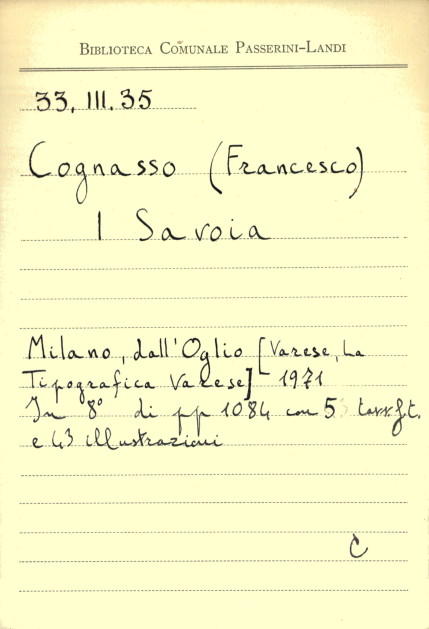 Biblioteca Comunale Passerini-Landi
33. III. 35
Cognasso (Francesco)
I Savoia
Milano, dall'Oglio [Varese, La
Tipografica Varese] 1971
In 8° di pp 1084 con 5 tavv.f.t.
e 43 illustrazioni
C